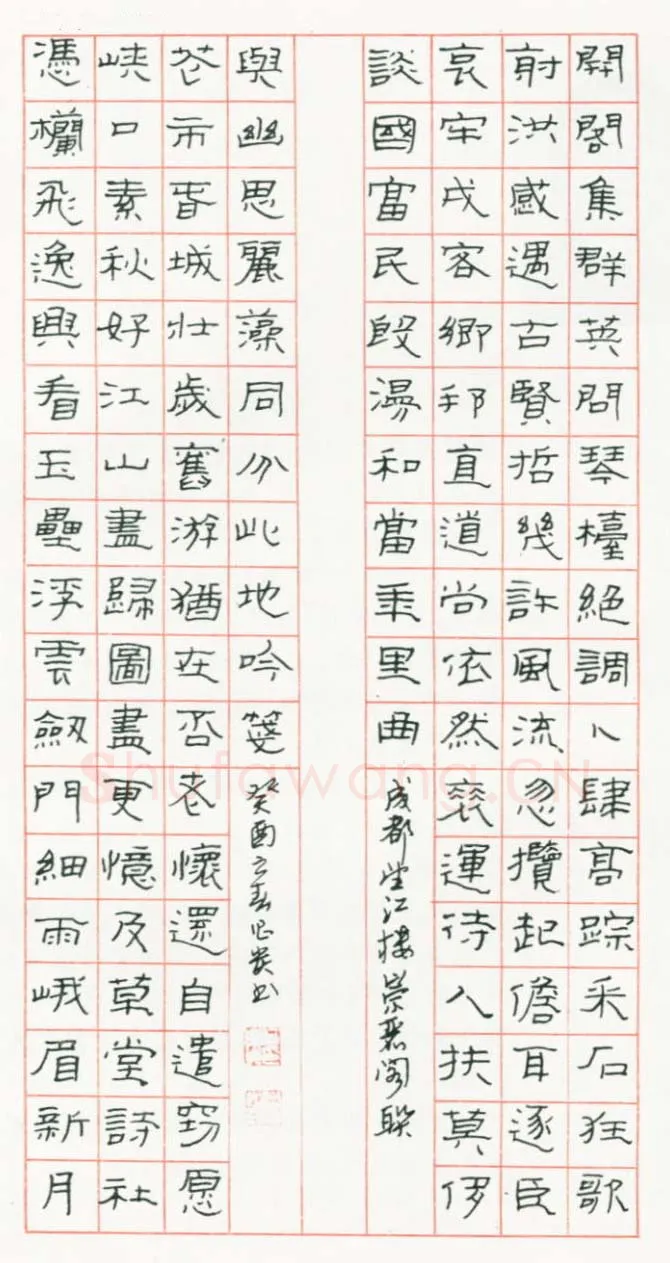 開閣集群英問琴檯絕調卜肆高踪采石狂歌
射洪感遇古賢哲幾許風流忽攬起儋耳逐臣
哀牢戍客鄉邦直道尚依然衰運待人扶莫侈
談國富民殷漫和當年里曲
成都望江樓崇麗閣聯
憑欄飛逸興看玉壘浮雲劍門細雨峨眉新月
峽口素秋好江山盡歸圖畫更憶及草堂詩社
花市春城壯歲舊游猶在否老懷還自遣窃愿
與幽思麗藻同分此地吟箋
癸酉之春書
Shufawang.CN